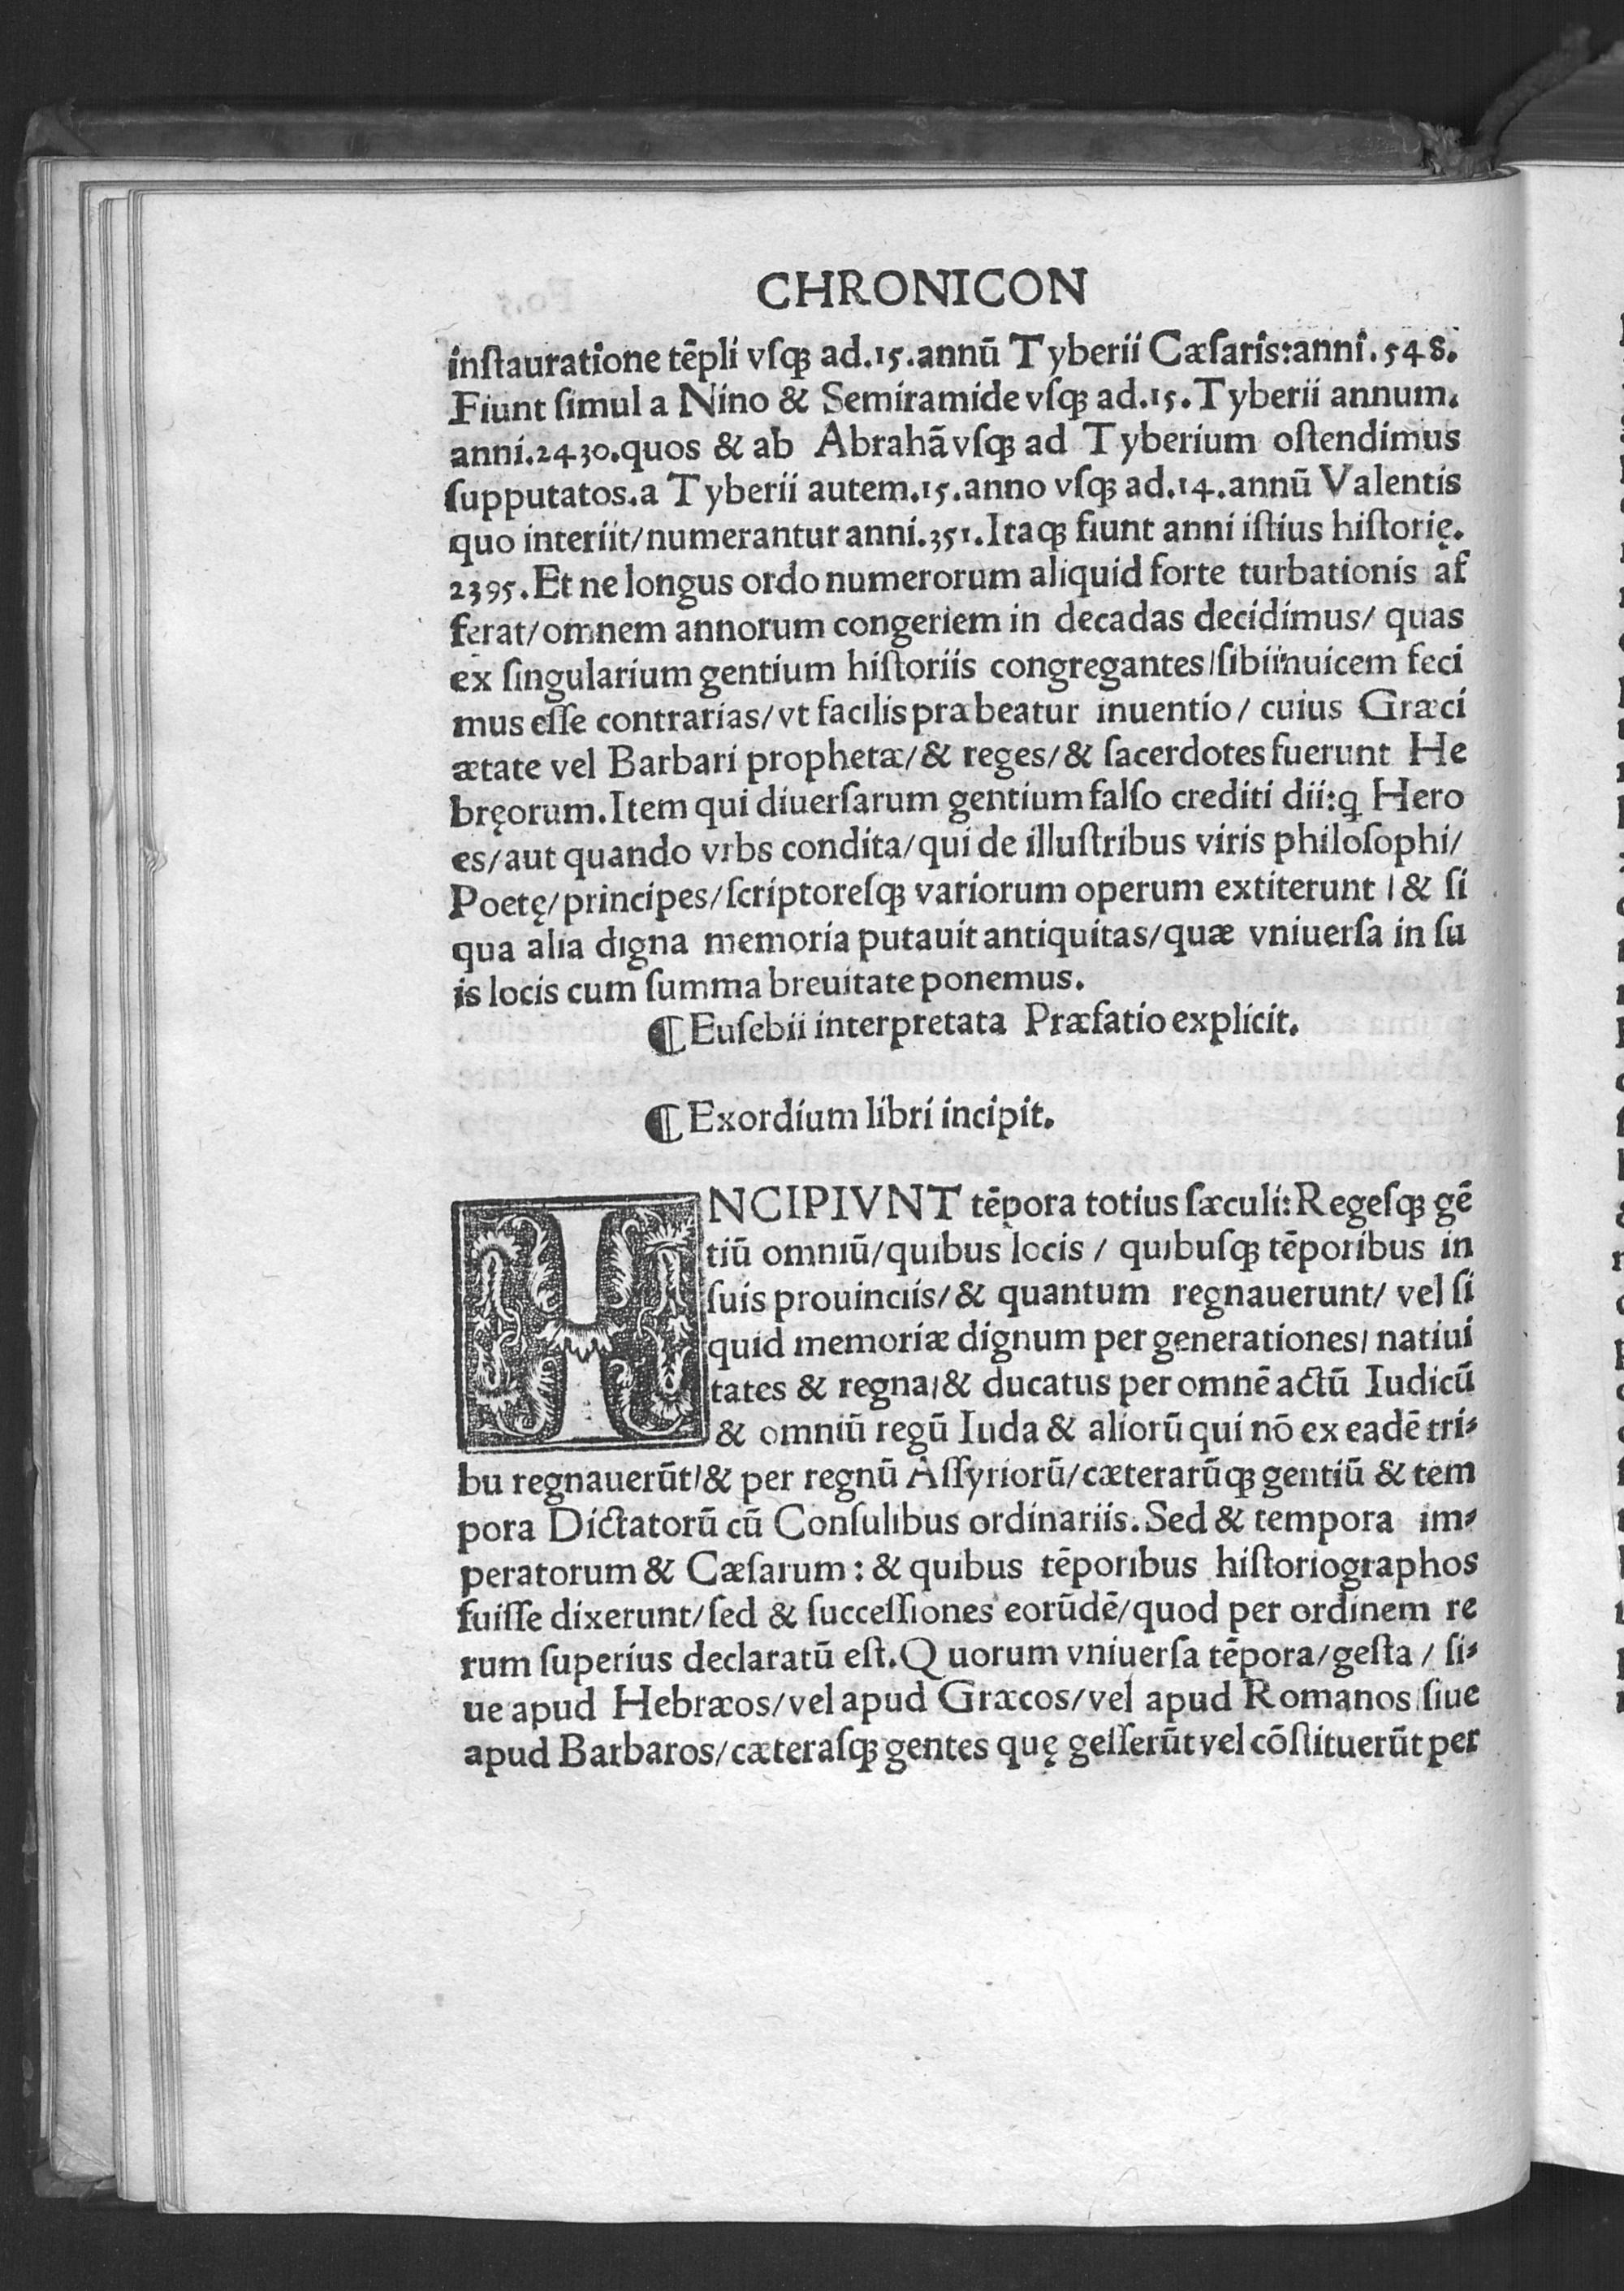 CHRONICON
inſtauratione tēpli vſqꝫ ad.15.annū Tyberii Cæſaris:anni.548.
Fiunt ſimul a Nino & Semiramide vſqꝫ ad.15.Tyberii annum.
anni.2430.quos & ab Abrahā vſqꝫ ad Tyberium oſtendimus
ſupputatos.a Tyberii autem.15.anno vſqꝫ ad.14.annū Valentis
quo interiit/numerantur anni.351.Itaqꝫ fiunt anni iſtius hiſtorię.
2395.Et ne longus ordo numerorum aliquid forte turbationis af
ferat/omnem annorum congeriem in decadas decidimus/ quas
ex ſingularium gentium hiſtoriis congregantes/ſibiinuicem feci
mus eſſe contrarias/vt facilis præbeatur inuentio/ cuius Græci
ætate vel Barbari prophetæ/& reges/& ſacerdotes fuerunt He
bręorum.Item qui diuerſarum gentium falſo crediti dii:ꝗ Hero
es/aut quando vrbs condita/qui de illuſtribus viris philoſophi/
Poetę/principes/ſcriptoreſqꝫ variorum operum extiterunt / & ſi
qua alia digna memoria putauit antiquitas/quæ vniuerſa in ſu
is locis cum ſumma breuitate ponemus.
¶Euſebii interpretata Præfatio explicit.
¶Exordium libri incipit.
HNCIPIVNT tēpora totius ſæculi:Regeſqꝫ gē
tiū omniū/quibus locis / quibuſqꝫ tēporibus in
ſuis prouinciis/& quantum regnauerunt/ vel ſi
quid memoriæ dignum per generationes/ natiui
tates & regna/& ducatus per omnē actū Iudicū
& omniū regū Iuda & aliorū qui nō ex eadē tri⸗
bu regnauerūt/& per regnū Aſſyriorū/cæterarūqꝫ gentiū & tem
pora Dictatorū cū Conſulibus ordinariis.Sed & tempora im⸗
peratorum & Cæſarum : & quibus tēporibus hiſtoriographos
fuiſſe dixerunt/ſed & ſucceſſiones eorūdē/quod per ordinem re
rum ſuperius declaratū eſt.Quorum vniuerſa tēpora/geſta / ſi⸗
ue apud Hebræos/vel apud Græcos/vel apud Romanos/ſiue
apud Barbaros/cæteraſqꝫ gentes quę geſſerūt vel cōſtituerūt per